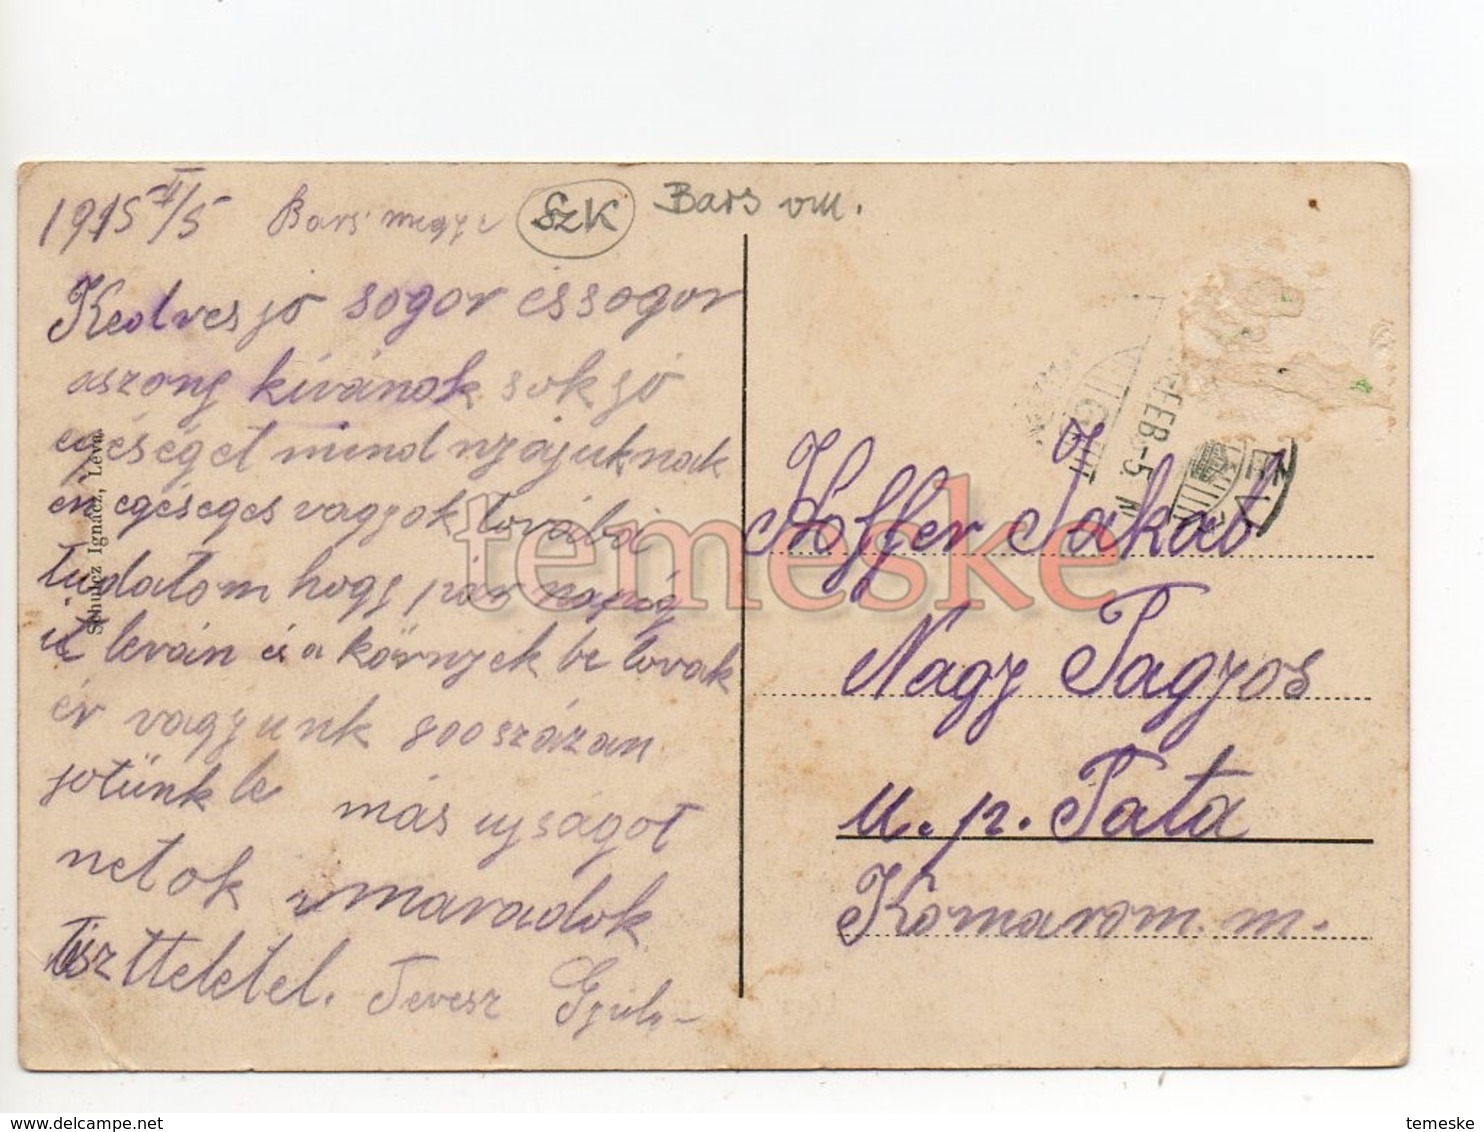 1915 II/5 Bars megye SzK Bars vm.
Kedves jó sogor és sogor
aszony kívánok sok jó
egéséget mind nyájuknak
én egéseges vagyok továbói
tudatom hogy pár napig
it leván és a környek be lovak
ér vagyunk 800 százan
jotünk le más ujságot
netok maradok
tiszttelettel. Tevesz Gyula
Schulcz Ignácz, Léva.
FEB.-5. N
Hoffer Jakab
Nagy Tagyos
u. p. Tata
Komarom. m.
temeske
www.delcampe.net
temeske